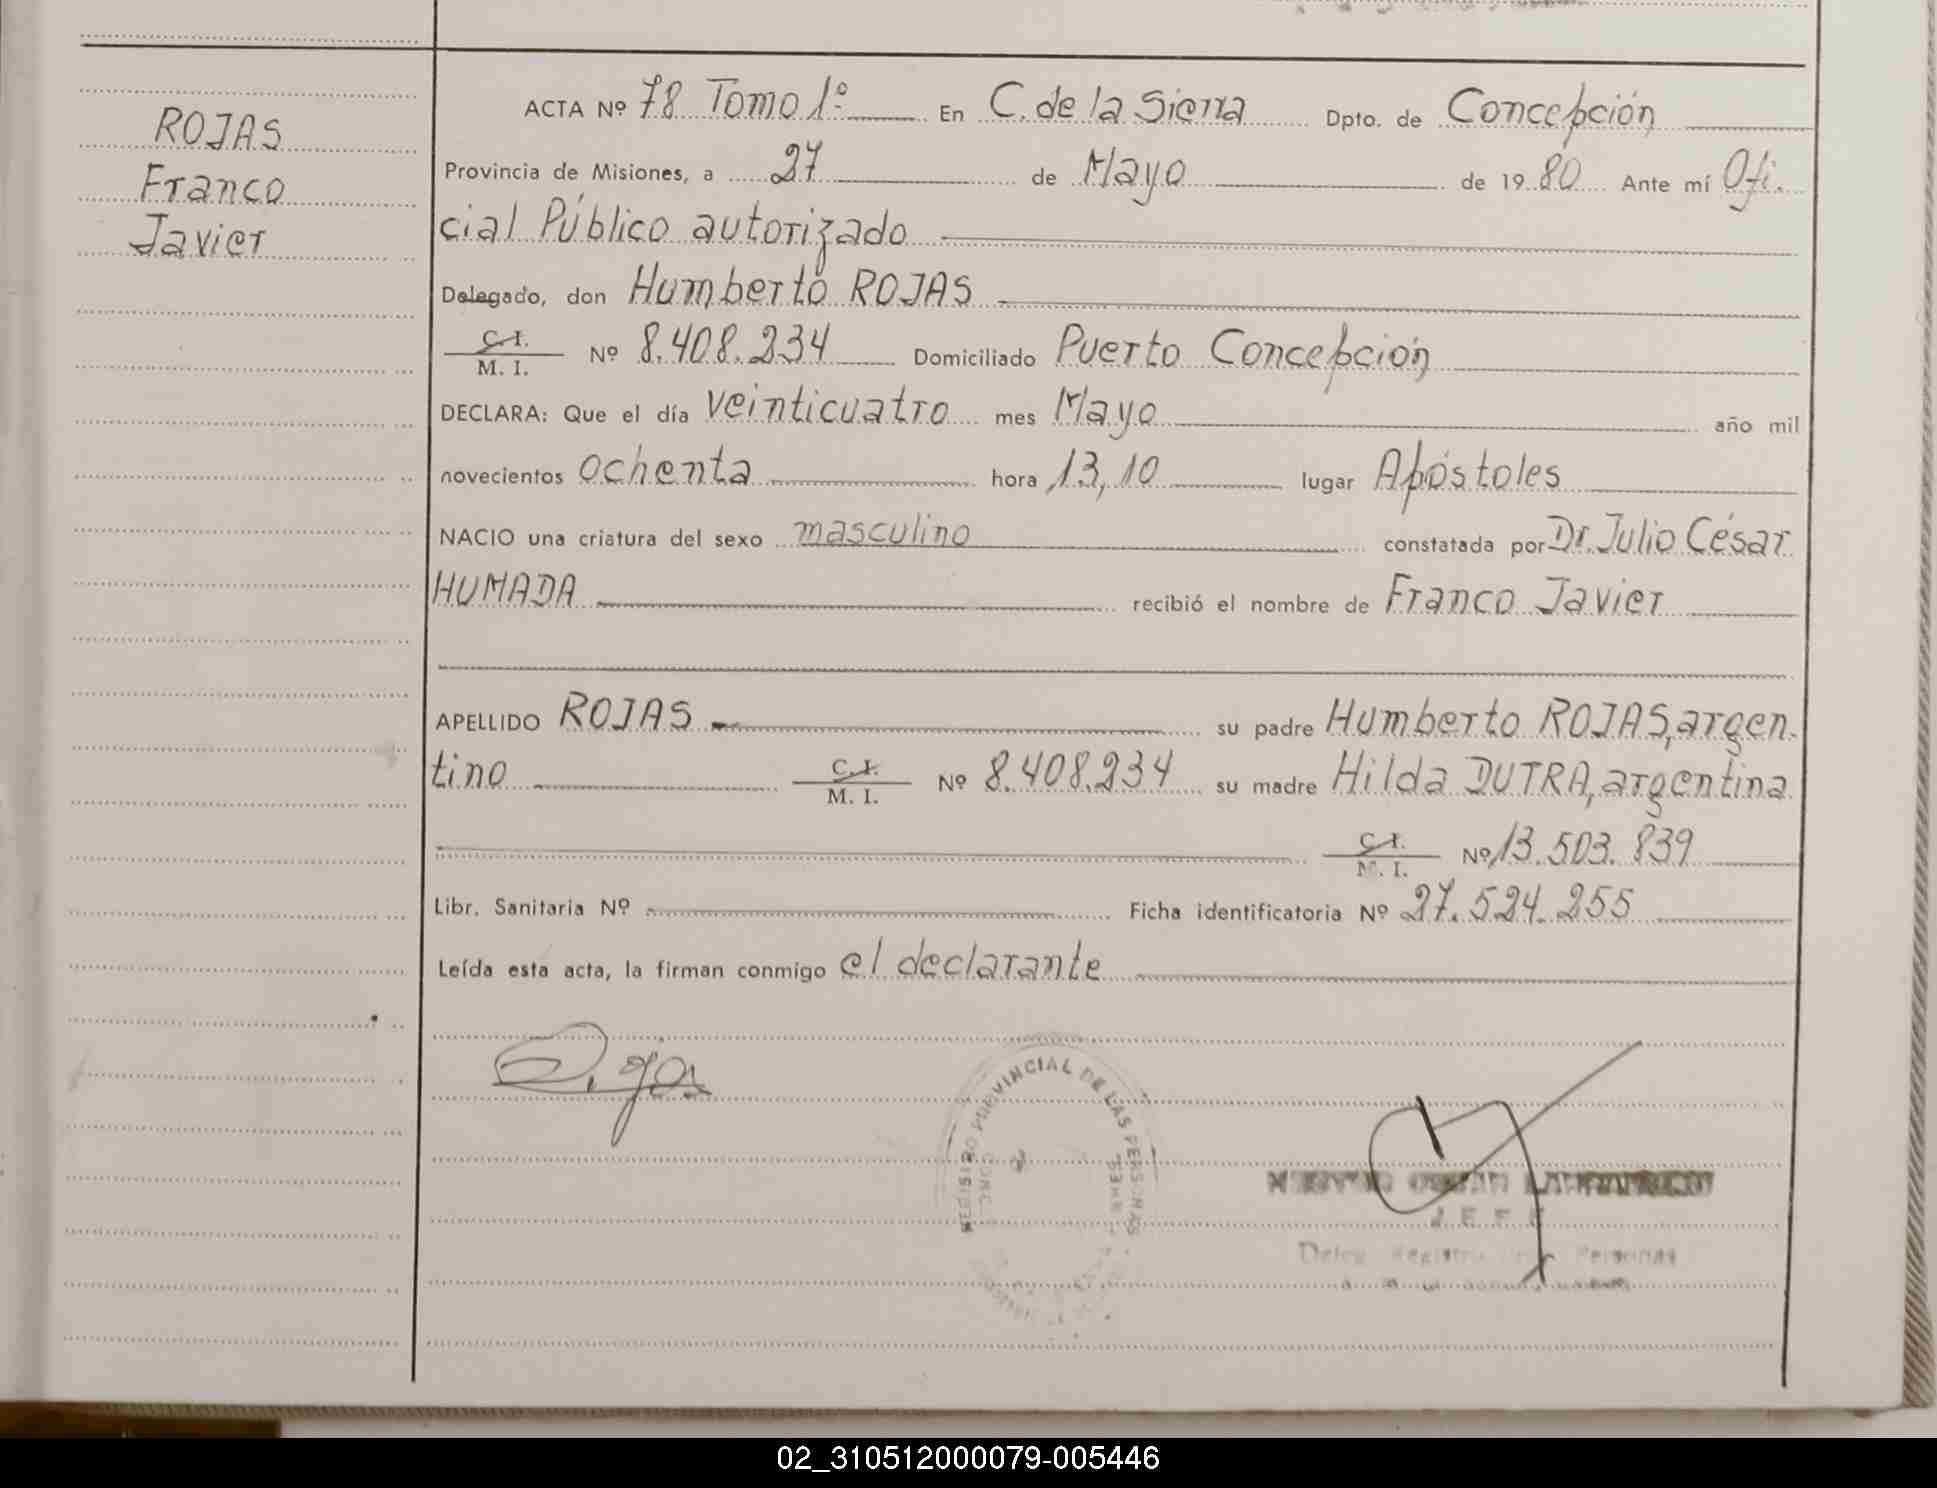 ROJAS
Franco
Javier
ACTA Nº 78 Tomo 1º En C. de la Sierra Dpto. de Concepción
Provincia de Misiones, a 27 de Mayo de 1980 Ante mí Ofi.
cial Público autorizado
Delegado, don Humberto ROJAS
C. I. / M. I. Nº 8.408.234 Domiciliado Puerto Concepción
DECLARA: Que el día veinticuatro mes Mayo año mil
novecientos ochenta hora 13,10 lugar Apóstoles
NACIO una criatura del sexo masculino constatada por Dr. Julio César
HUMADA recibió el nombre de Franco Javier
APELLIDO ROJAS su padre Humberto ROJAS, argen.
tino C. I. / M. I. Nº 8.408.234 su madre Hilda DUTRA, argentina
C. I. / M. I. Nº 13.503.839
Libr. Sanitaria Nº Ficha identificatoria Nº 27.524.255
Leída esta acta, la firman conmigo el declarante
REGISTRO PROVINCIAL DE LAS PERSONAS
JEFE
Personas
02_310512000079-005446